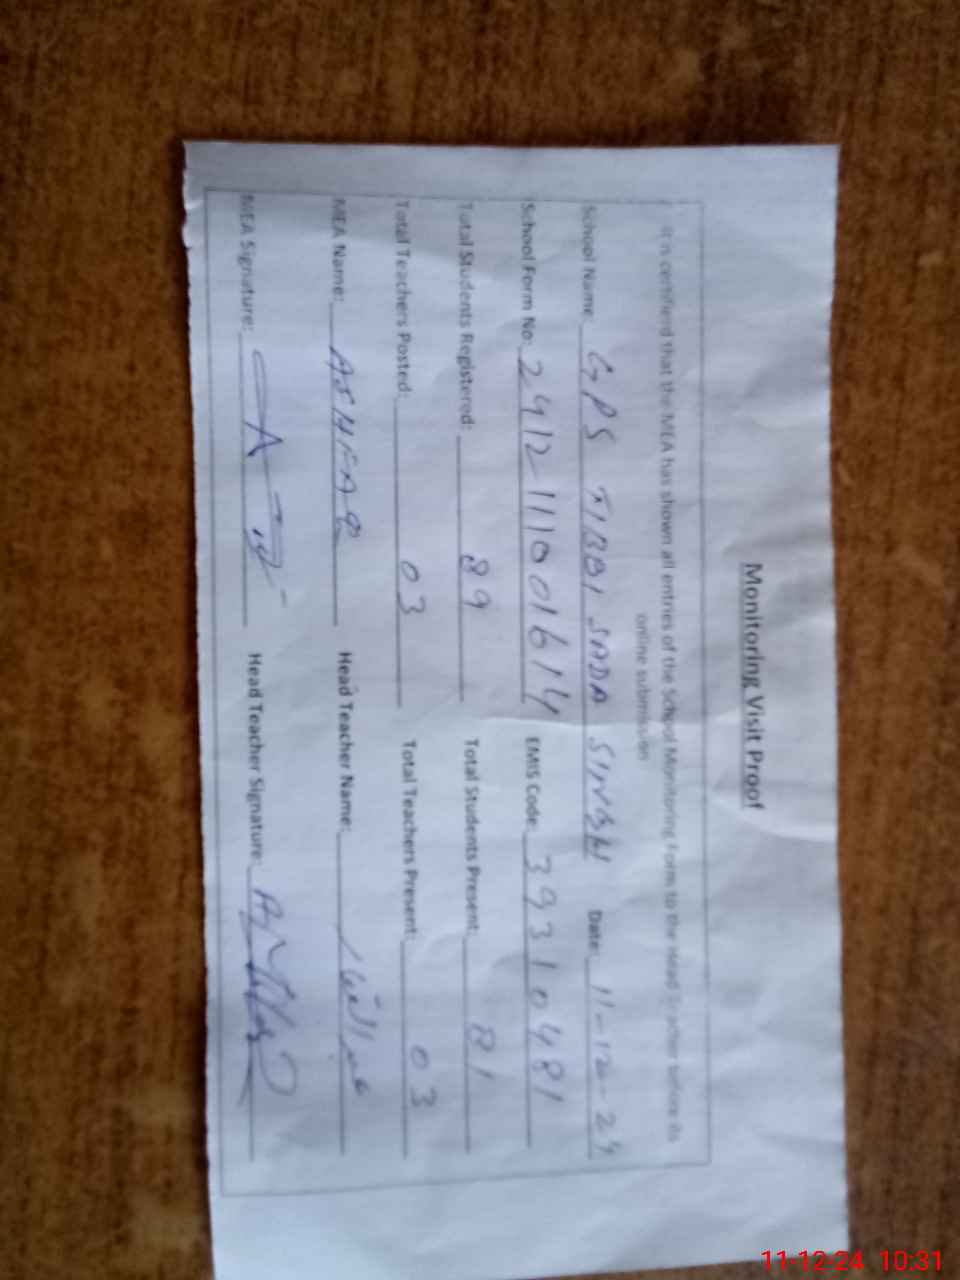 Monitoring Visit Proof
It is certified that the MEA has shown all entries of the School Monitoring Form to the Head Teacher before its
online submission
School Name: GPS TIBBI SADA SINGH Date: 11-12-24
School Form No: 2412111001614 EMIS Code: 39310481
Total Students Registered: 89 Total Students Present: 81
Total Teachers Posted: 03 Total Teachers Present: 03
MEA Name: ASHFAQ Head Teacher Name: عبدالغفار
MEA Signature: Head Teacher Signature:
11-12-24 10:31